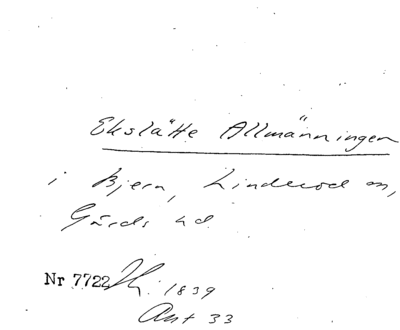 Ekslätte Allmänningen
i Bjern, Linderöd sn,
Gärds hd
Nr 7722 1839
Ant 33